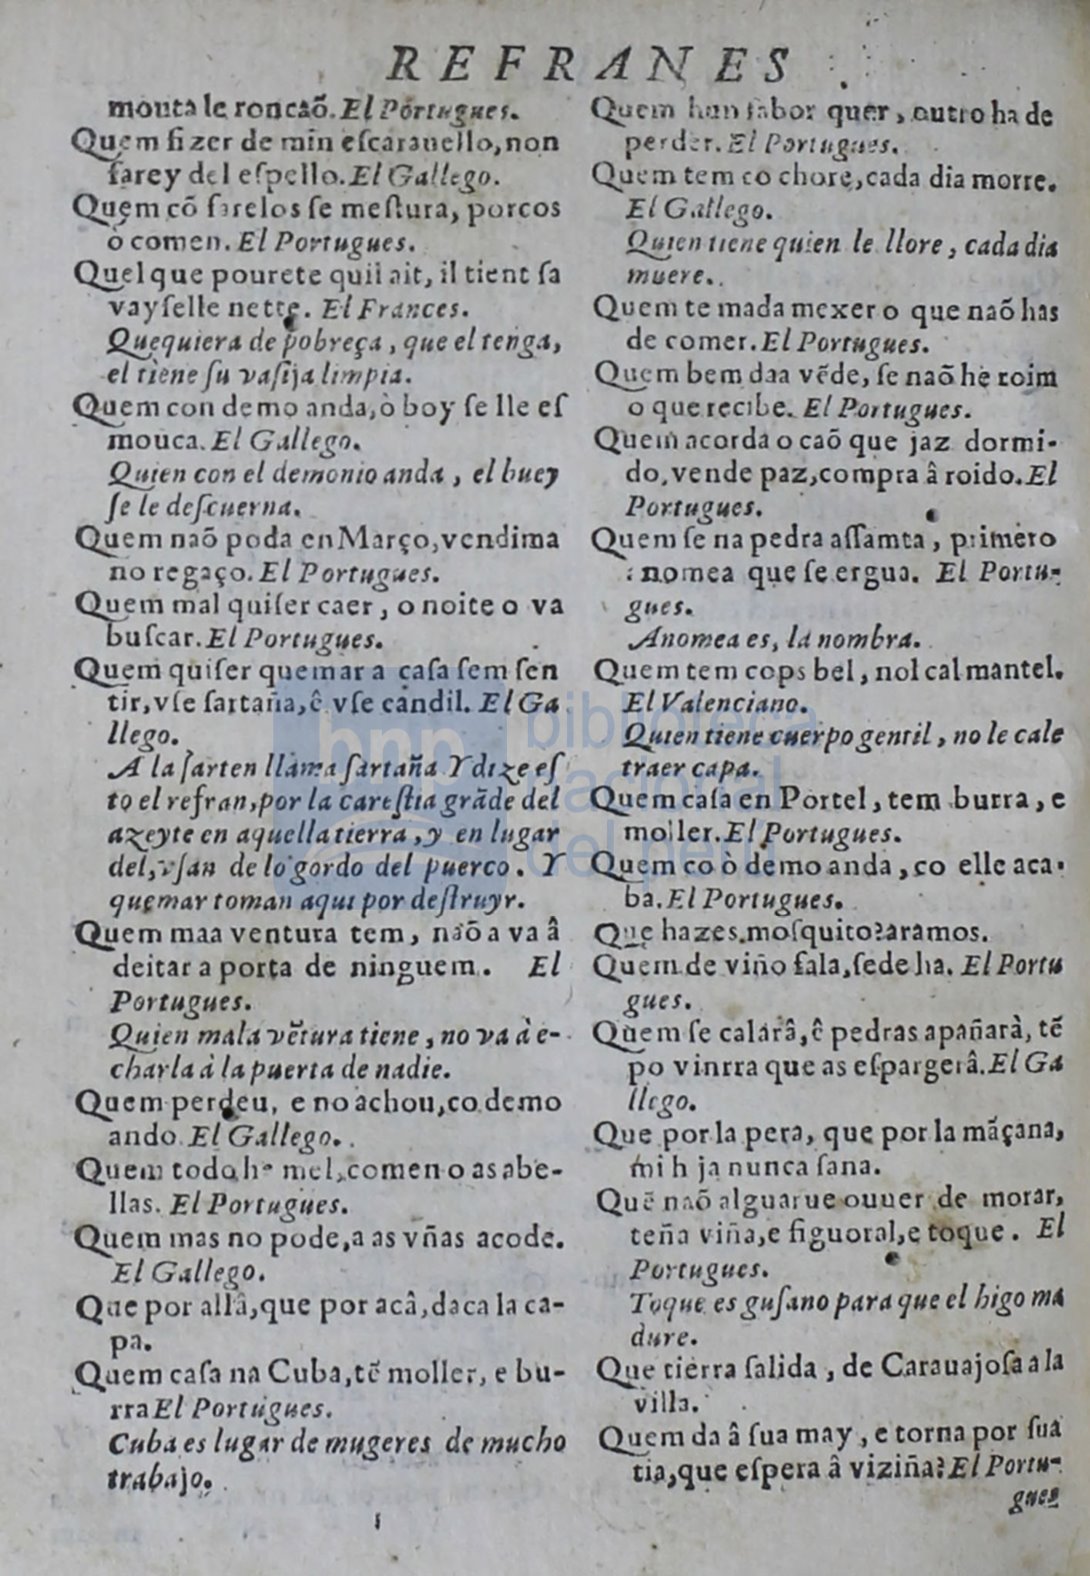 REFRANES
monta le roncaõ. El Portugues.
Quem fizer de min eſcarauello, non
farey del eſpello. El Gallego.
Quem cõ farelos ſe meſtura, porcos
ò comen. El Portugues.
Quel que pourete quil ait, il tient ſa
vayſelle nette. El Frances.
Quequiera de pobreça, que el tenga,
el tiene ſu vaſija limpia.
Quem con demo anda, ò boy ſe lle eſ
mouca. El Gallego.
Quien con el demonio anda, el buey
ſe le deſcuerna.
Quem naõ poda en Março, vendima
no regaço. El Portugues.
Quem mal quiſer caer, o noite o va
buſcar. El Portugues.
Quem quiſer quemar a caſa ſem ſen
tir, vſe ſartaña, ê vſe candil. El Ga
llego.
A la ſarten llama ſartaña Y dize eſ
to el refran, por la careſtia grãde del
azeyte en aquella tierra, y en lugar
del, vſan de lo gordo del puerco. Y
quemar toman aqui por deſtruyr.
Quem maa ventura tem, naõ a va â
deitar a porta de ninguem. El
Portugues.
Quien mala vẽtura tiene, no va à e-
charla à la puerta de nadie.
Quem perdeu, e no achou, co demo
ando El Gallego.
Quem todo he mel, comen o as abe-
llas. El Portugues.
Quem mas no pode, a as vñas acode.
El Gallego.
Que por allâ, que por acâ, daca la ca-
pa.
Quem caſa na Cuba, tẽ moller, e bu-
rra El Portugues.
Cuba es lugar de mugeres de mucho
trabajo.
Quem hun ſabor quer, outro ha de
perder. El Portugues.
Quem tem co chore, cada dia morre.
El Gallego.
Quien tiene quien le llore, cada dia
muere.
Quem te mada mexer o que naõ has
de comer. El Portugues.
Quem bem daa vẽde, ſe naõ he roim
o que recibe. El Portugues.
Quem acorda o caõ que jaz dormi-
do, vende paz, compra â roido. El
Portugues.
Quem ſe na pedra aſſamta, primero
a nomea que ſe ergua. El Portu-
gues.
Anomea es, la nombra.
Quem tem cops bel, nol cal mantel.
El Valenciano.
Quien tiene cuerpo gentil, no le cale
traer capa.
Quem caſa en Portel, tem burra, e
moller. El Portugues.
Quem co ò demo anda, co elle aca-
ba. El Portugues.
Que hazes moſquito? aramos.
Quem de viño fala, ſede ha. El Portu
gues.
Quem ſe calárâ, ê pedras apañarà, tẽ
po vinrra que as eſpargerâ. El Ga
llego.
Que por la pera, que por la mãçana,
mi h ja nunca ſana.
Quẽ naõ alguarue ouuer de morar,
teña viña, e figuoral, e toque. El
Portugues.
Toque es guſano para que el higo ma
dure.
Que tierra ſalida, de Carauajoſa a la
villa.
Quem da â ſua may, e torna por ſua
tia, que eſpera â viziña? El Portu-
gues
bnp
biblioteca
nacional
del perú